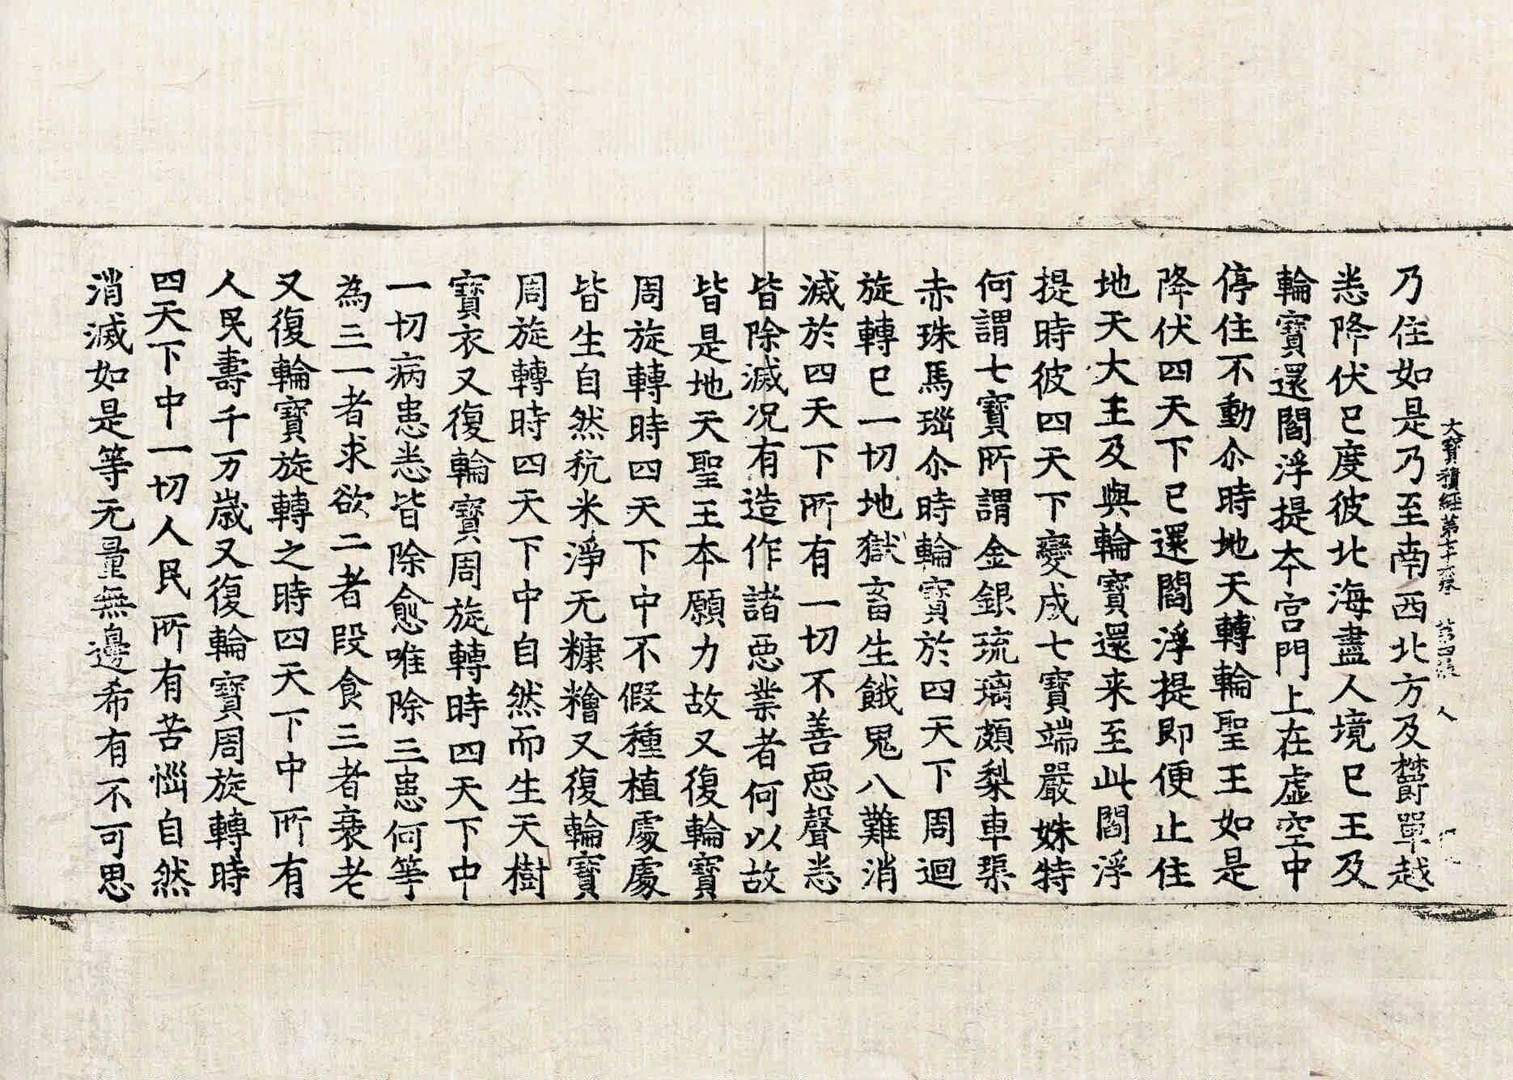 大寶積經第七十六卷 第四張 人
乃住如是乃至南西北方及欝單越
悉降伏已度彼北海盡人境已王及
輪寶還閻浮提本宮門上在虛空中
停住不動尒時地天轉輪聖王如是
降伏四天下已還閻浮提即便止住
地天大王及與輪寶還来至此閻浮
提時彼四天下變成七寶端嚴姝特
何謂七寶所謂金銀琉璃頗梨車璖
赤珠馬瑙尒時輪寶於四天下周迴
旋轉已一切地獄畜生餓鬼八難消
滅於四天下所有一切不善惡聲悉
皆除滅况有造作諸惡業者何以故
皆是地天聖王本願力故又復輪寶
周旋轉時四天下中不假種植處處
皆生自然秔米淨无糠糩又復輪寶
周旋轉時四天下中自然而生天樹
寶衣又復輪寶周旋轉時四天下中
一切病患悉皆除愈唯除三患何等
為三一者求欲二者段食三者衰老
又復輪寶旋轉之時四天下中所有
人民壽千万歲又復輪寶周旋轉時
四天下中一切人民所有苦惱自然
消滅如是等无量無邊希有不可思